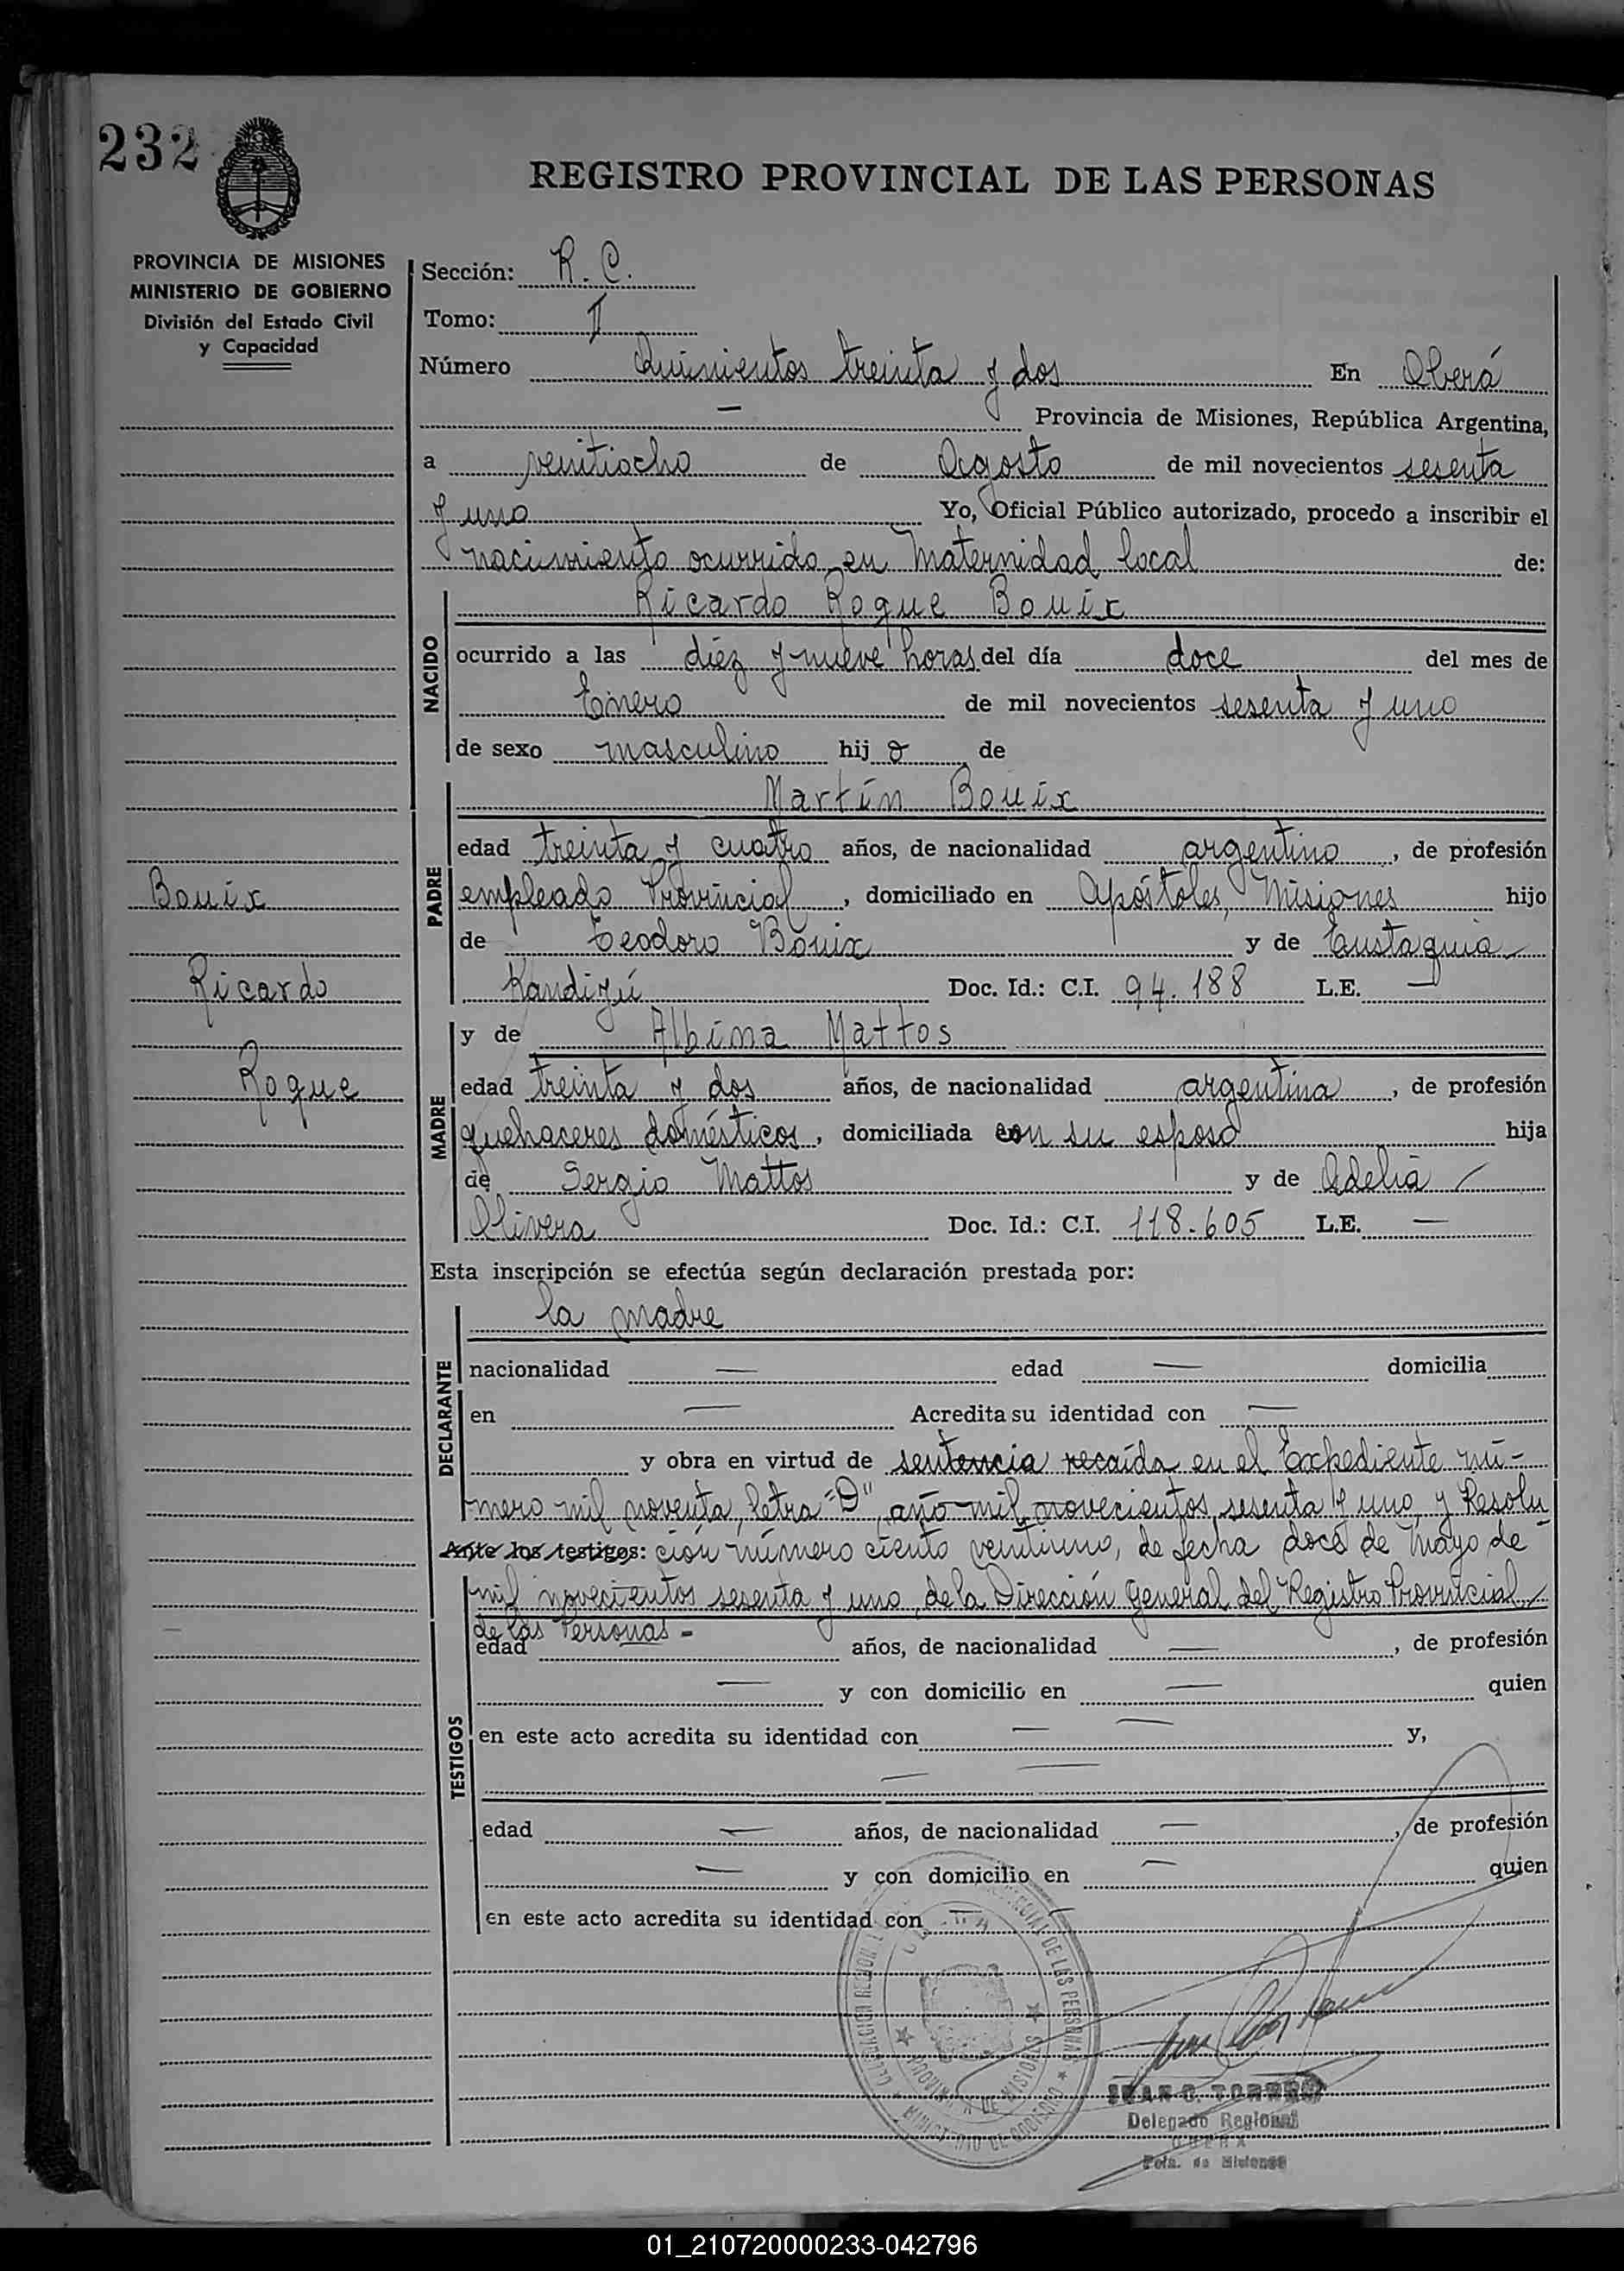 232
REGISTRO PROVINCIAL DE LAS PERSONAS
PROVINCIA DE MISIONES
MINISTERIO DE GOBIERNO
División del Estado Civil
y Capacidad
Sección: R. C.
Tomo: II
Número Quinientos treinta y dos En Oberá
— Provincia de Misiones, República Argentina,
a veintiocho de Agosto de mil novecientos sesenta
y uno Yo, Oficial Público autorizado, procedo a inscribir el
nacimiento ocurrido en Maternidad local de:
NACIDO
Ricardo Roque Bouix
ocurrido a las diez y nueve horas del día doce del mes de
Enero de mil novecientos sesenta y uno
de sexo masculino hij o de
PADRE
Martín Bouix
edad treinta y cuatro años, de nacionalidad argentino, de profesión
empleado Provincial, domiciliado en Apóstoles, Misiones hijo
de Teodoro Bouix y de Eustaquia
Kandizú Doc. Id.: C.I. 94.188 L.E. —
Bouix
Ricardo
Roque
MADRE
y de Albina Mattos
edad treinta y dos años, de nacionalidad argentina, de profesión
quehaceres domésticos, domiciliada con su esposo hija
de Sergio Mattos y de Adelia
Olivera Doc. Id.: C.I. 118.605 L.E. —
Esta inscripción se efectúa según declaración prestada por:
DECLARANTE
la madre
nacionalidad — edad — domicilia
en — Acredita su identidad con —
y obra en virtud de sentencia recaída en el Expediente nú-
mero mil noventa, letra "D", año mil novecientos sesenta y uno y Resolu
Ante los testigos: ción número ciento veintiuno, de fecha doce de Mayo de
mil novecientos sesenta y uno, de la Dirección General del Registro Provincial
de las Personas -
TESTIGOS
edad años, de nacionalidad —, de profesión
— y con domicilio en — quien
en este acto acredita su identidad con — — y,
— —
edad — años, de nacionalidad —, de profesión
— y con domicilio en — quien
en este acto acredita su identidad con —
DE LAS PERSONAS
PROVINCIA DE MISIONES
MINISTERIO DE GOBIERNO
JUAN C. TORRES
Delegado Regional
OBERA
Pcia. de Misiones
01_210720000233-042796